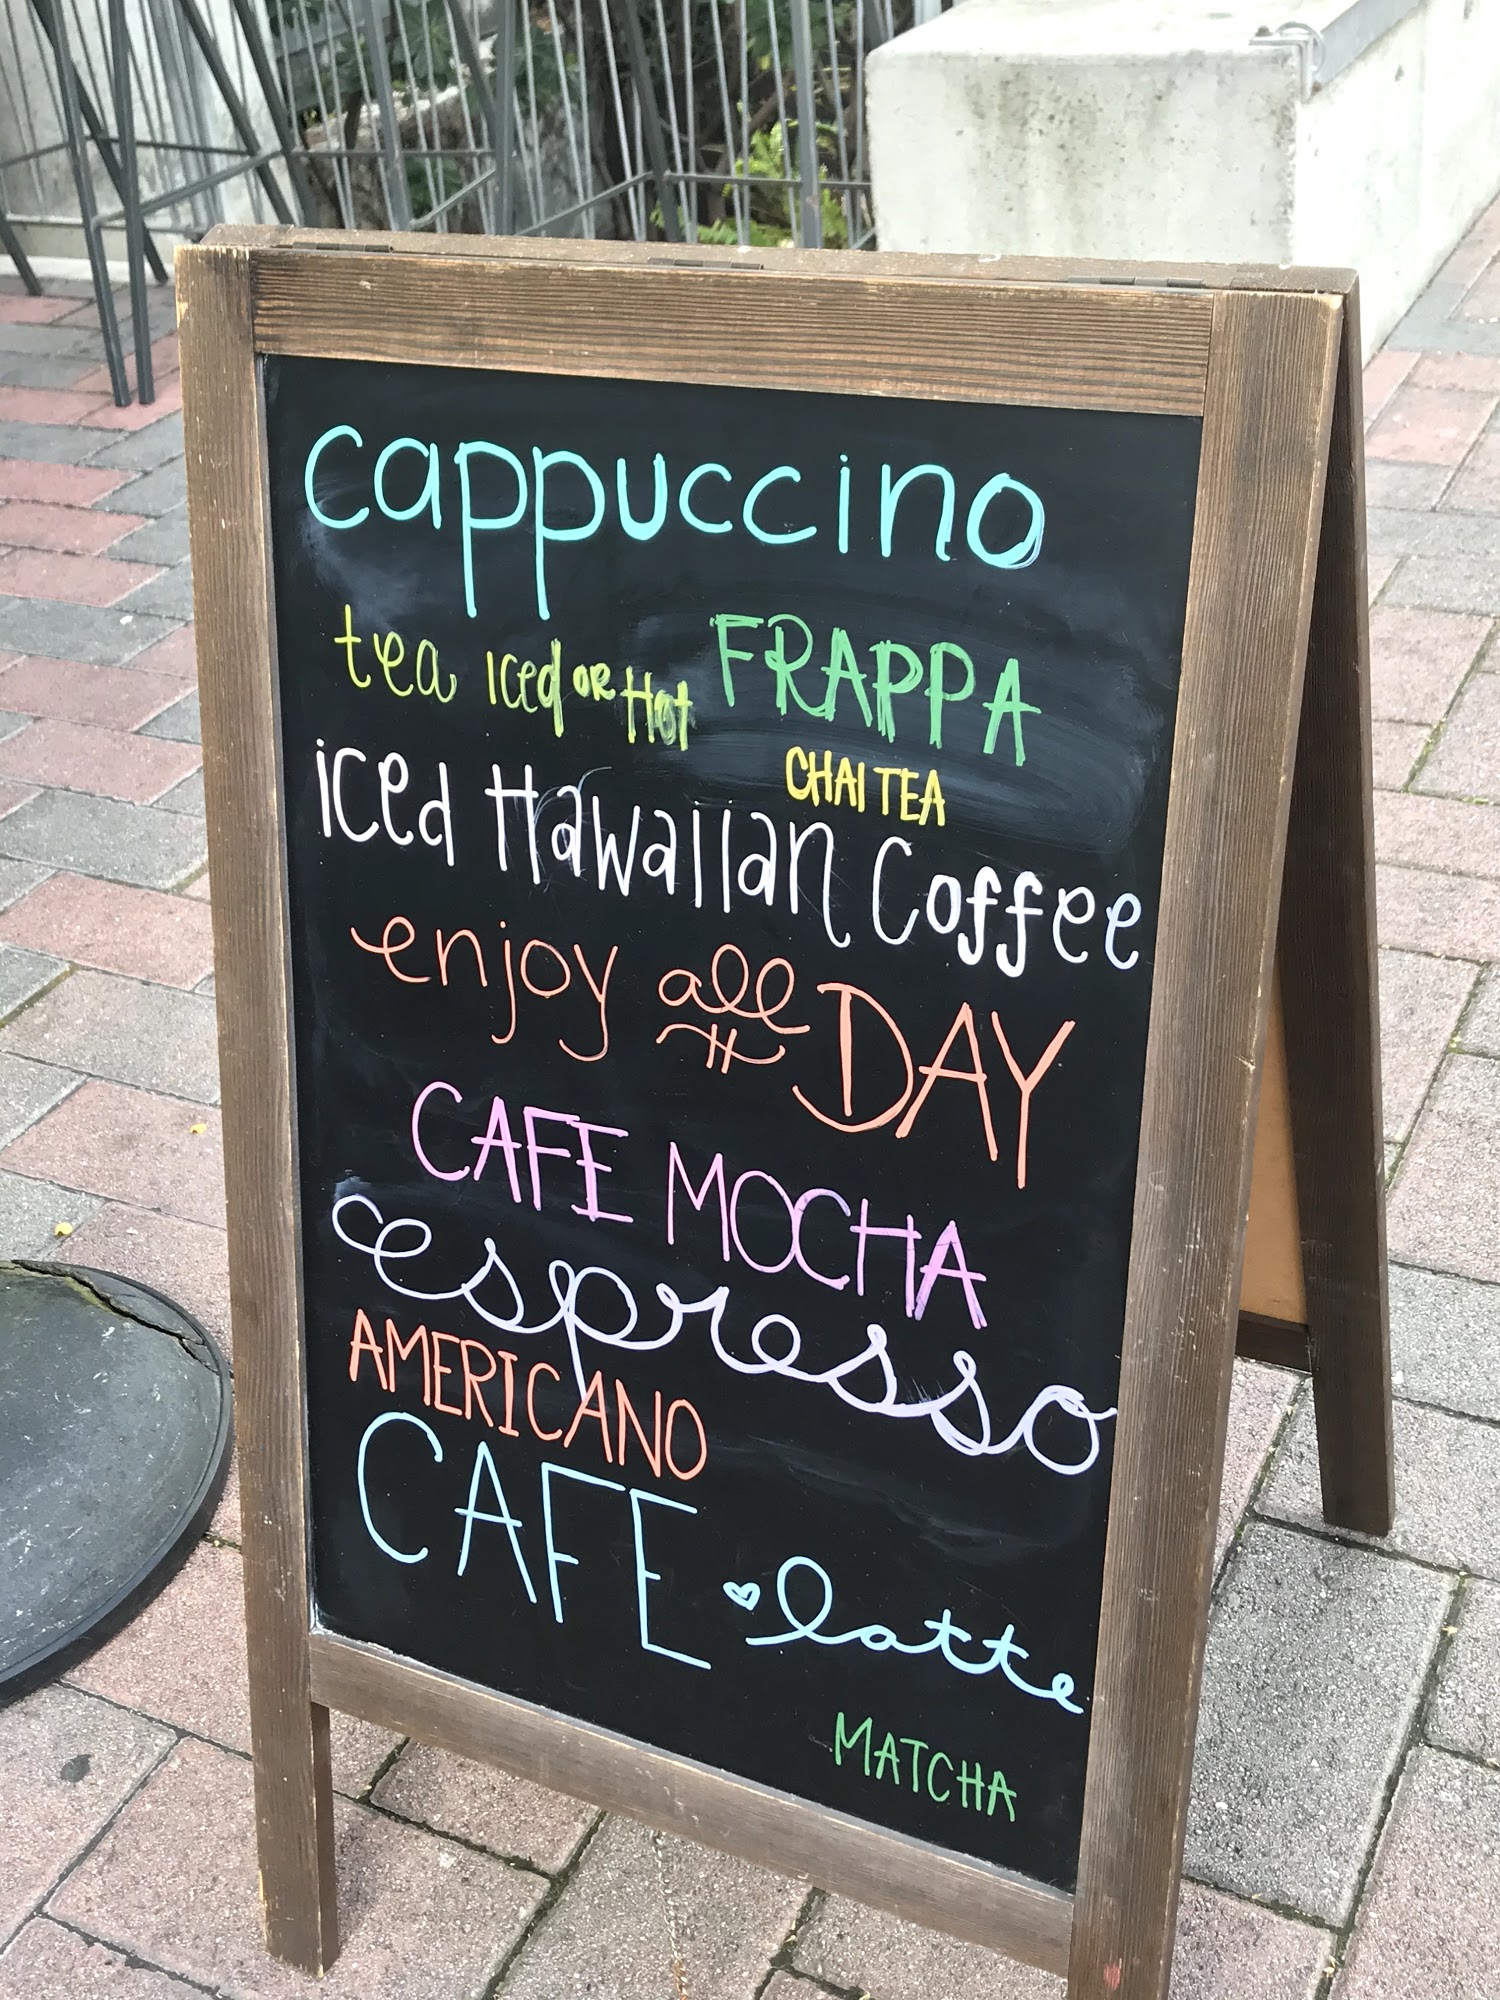 cappuccino
tea iced OR Hot FRAPPA
CHAI TEA
iced Hawaiian Coffee
enjoy all DAY
CAFE MOCHA
espresso
AMERICANO
CAFE latte
MATCHA